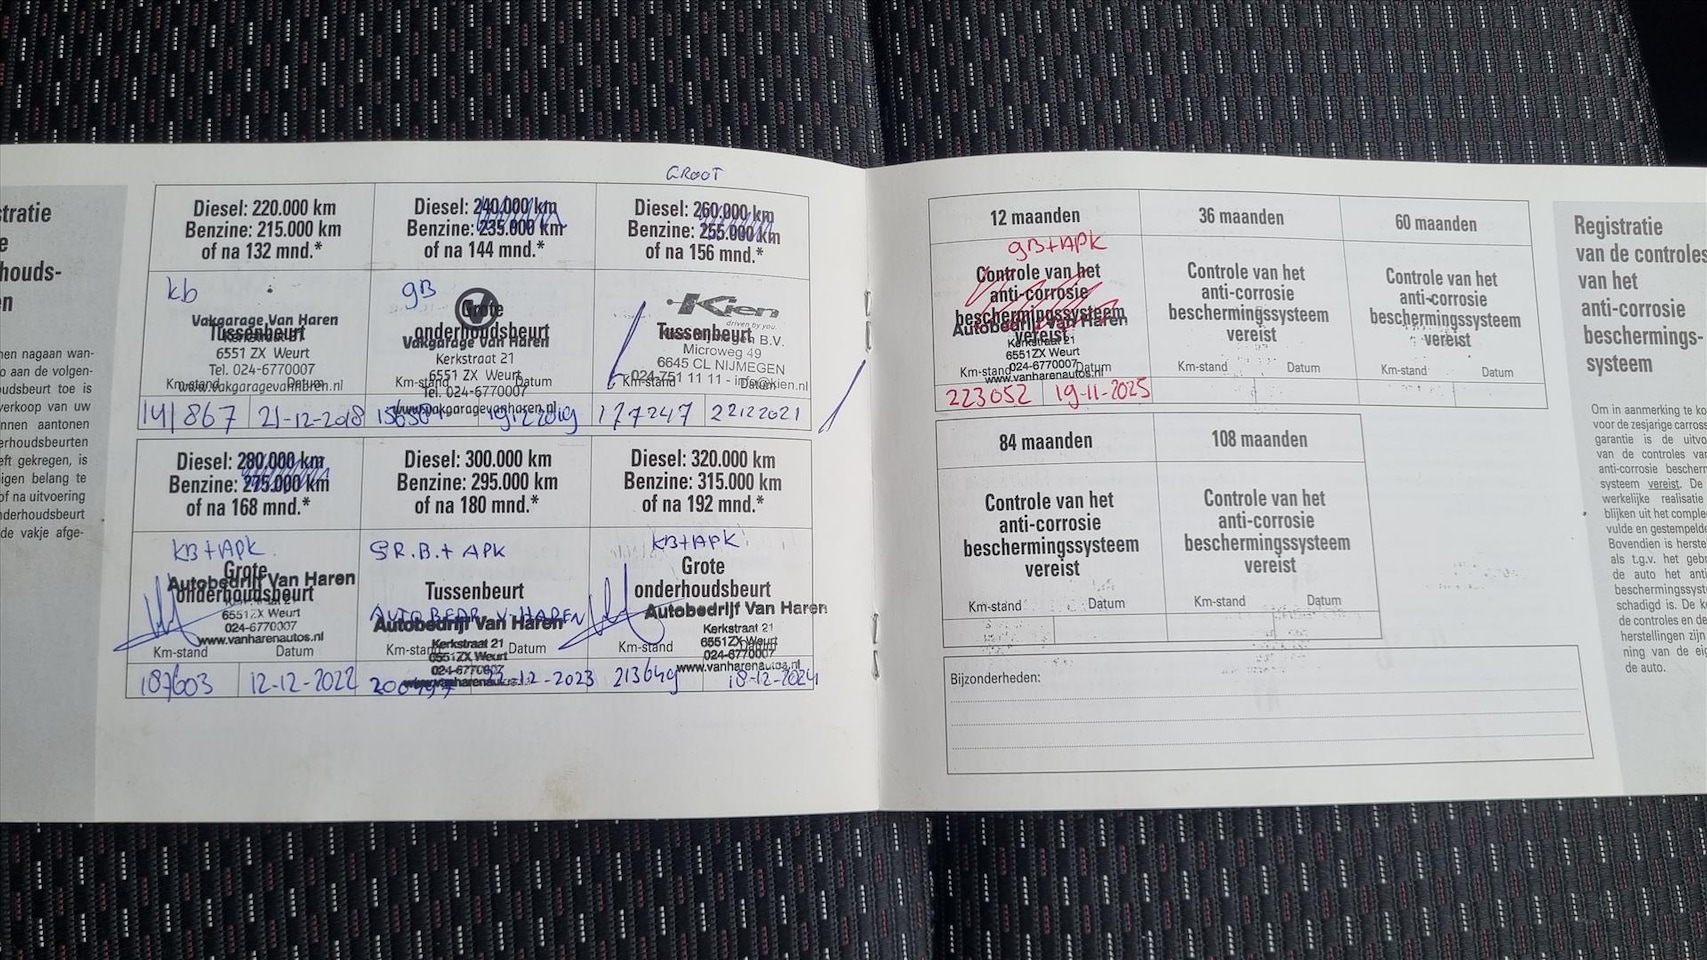 GROOT
Diesel: 220.000 km
Benzine: 215.000 km
of na 132 mnd.*
kb
Vakgarage Van Haren
Tussenbeurt
6551 ZX Weurt
Tel. 024-6770007
Km-stand Datum
www.vakgaragevanharen.nl
141867 21-12-2018
Diesel: 240.000 km
Benzine: 235.000 km
of na 144 mnd.*
gB
Grote
onderhoudsbeurt
Vakgarage Van Haren
Kerkstraat 21
6551 ZX Weurt
Tel. 024-6770007
Km-stand Datum
www.vakgaragevanharen.nl
Diesel: 260.000 km
Benzine: 255.000 km
of na 156 mnd.*
Kien
driven by you
Tussenbeurt
B.V.
Microweg 49
6645 CL NIJMEGEN
Km-stand Datum
024-751 11 11 - info@kien.nl
177247 22122021
Diesel: 280.000 km
Benzine: 275.000 km
of na 168 mnd.*
KB+APK
Grote
Autobedrijf Van Haren
onderhoudsbeurt
6551ZX Weurt
024-6770007
www.vanharenautos.nl
Km-stand Datum
187603 12-12-2022
Diesel: 300.000 km
Benzine: 295.000 km
of na 180 mnd.*
GR.B.+ APK
Tussenbeurt
AUTOBEDR V. HAREN
Autobedrijf Van Haren
Kerkstraat 21
Km-stand Datum
6551ZX Weurt
024-6770007
www.vanharenautos.nl
12-2023
Diesel: 320.000 km
Benzine: 315.000 km
of na 192 mnd.*
KB+APK
Grote
onderhoudsbeurt
Autobedrijf Van Haren
Kerkstraat 21
6551ZX Weurt
Km-stand Datum
024-6770007
www.vanharenautos.nl
213649 18-12-2024
12 maanden
gB+APK
Controle van het
anti-corrosie
beschermingssysteem
Autobedrijf Van Haren
vereist
Kerkstraat 21
6551ZX Weurt
Km-stand Datum
024-6770007
www.vanharenautos.nl
223052 19-11-2025
36 maanden
Controle van het
anti-corrosie
beschermingssysteem
vereist
Km-stand Datum
60 maanden
Controle van het
anti-corrosie
beschermingssysteem
vereist
Km-stand Datum
84 maanden
Controle van het
anti-corrosie
beschermingssysteem
vereist
Km-stand Datum
108 maanden
Controle van het
anti-corrosie
beschermingssysteem
vereist
Km-stand Datum
Bijzonderheden:
Registratie
van de controles
van het
anti-corrosie
beschermings-
systeem
Om in aanmerking te ko
voor de zesjarige carross
garantie is de uitvo
van de controles van
anti-corrosie bescherm
systeem vereist. De
werkelijke realisatie
blijken uit het comple
vulde en gestempelde
Bovendien is herste
als t.g.v. het geb
de auto het anti
beschermingssyste
schadigd is. De ko
de controles en de
herstellingen zijn
ning van de eig
de auto.
tratie
e
houds-
n
nen nagaan wan-
o aan de volgen-
oudsbeurt toe is
verkoop van uw
nnen aantonen
erhoudsbeurten
eft gekregen, is
igen belang te
of na uitvoering
nderhoudsbeurt
de vakje afge-